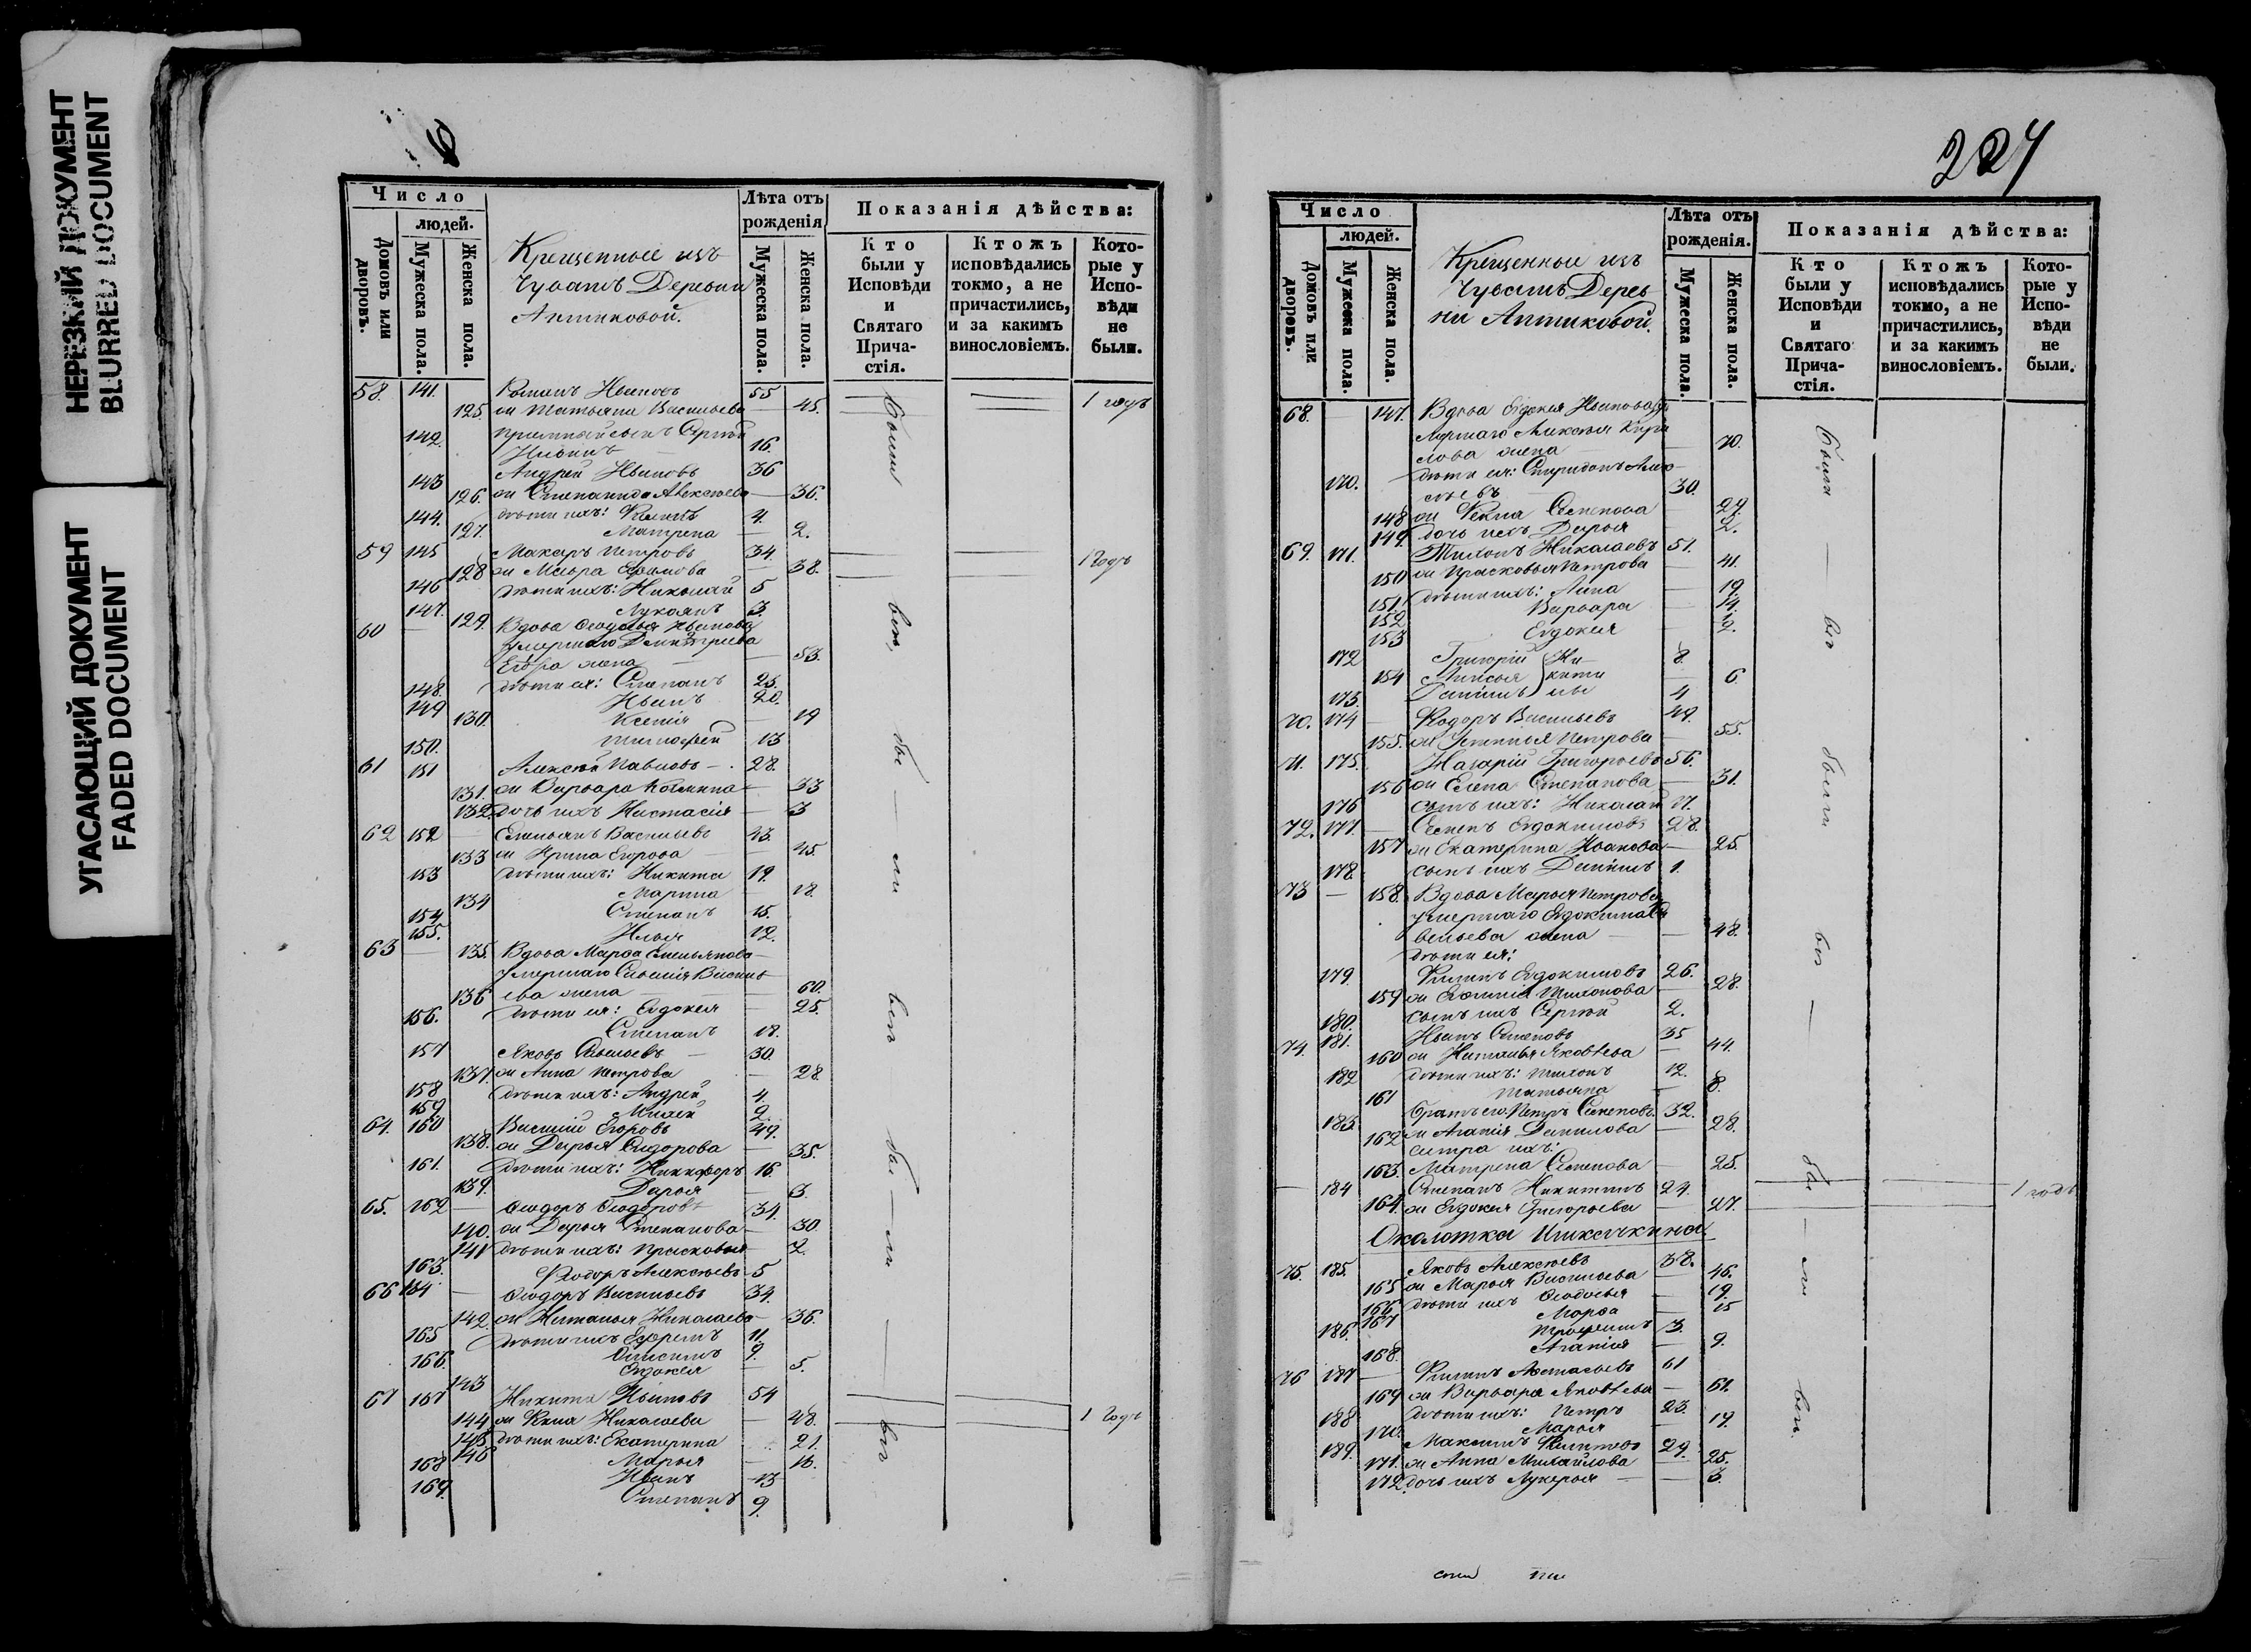 НЕРЕЗКИЙ ДОКУМЕНТ
BLURRED DOCUMENT
УГАСАЮЩИЙ ДОКУМЕНТ
FADED DOCUMENT
9
Число
людей.
Домовъ или дворовъ.
Мужеска пола.
Женска пола.
Крещенные изъ
Чувашъ Деревни
Аптиковой.
Лѣта отъ рожденія
Мужеска пола.
Женска пола.
Показанія дѣйства:
Кто были у Исповѣди и Святаго Причастія.
Ктожъ исповѣдались токмо, а не причастились, и за какимъ винословіемъ.
Которые у Исповѣди не были.
58. 141. Романъ Ивановъ 55 1 годъ
125 ж Татьяна Васильева — 45.
142. пріемный сынъ Сергѣй
Ильинъ 16.
143 Андрей Ивановъ 36
126. ж Степанида Алексѣева — 36.
144. дѣти ихъ: 4.
127. Матрена — 2.
59 145 Макаръ Петровъ 34. 1 годъ
128 ж Мавра Ефимова — 38.
146 дѣти ихъ: Николай 5
147. Лукоянъ 3.
60 — 129. Вдова Ѳеодосья Иванова
умершаго Димитріева
Егора жена — 53.
148. дѣти ея: Степанъ 25.
149 Иванъ 20.
130. Ксенія — 19
150. Тимофей 13
61 151 Алексѣй Павловъ 28.
131. ж Варвара Козмина — 33
132 дочь ихъ Настасія — 3
62 152 — Емельянъ Васильевъ 43.
133 ж Ирина Егорова — 45.
153 дѣти ихъ: Никита 19.
134 Марина — 18.
154 Степанъ 15.
155. Илья 12.
63 — 135. Вдова Марѳа Емельянова
умершаго Савелія Василь
136 ева жена — 60.
156. дѣти ея: Евдокея — 25.
Степанъ 18.
157 Яковъ Савельевъ 30
137. ж Анна Петрова — 28.
158 дѣти ихъ: Андрей 4.
159 Михей 2.
64. 160 Василій Егоровъ 49.
138. ж Дарья Сидорова — 35.
161. дѣти ихъ: Никифоръ 16.
139. Дарья — 3.
65. 162 — Ѳеодоръ Ѳеодоровъ 34.
140. ж Дарья Степанова — 30
141 дѣти ихъ: Прасковья 2.
163. Ѳеодоръ Алексѣевъ 5
66 164 — Ѳеодоръ Васильевъ 34.
142. ж Наталья Николаева — 36.
165 дѣти ихъ Ефремъ 11.
166. Онисимъ 9.
143 Евдокея — 5.
67 167 Никита Ивановъ 54
144 ж Николаева — 48. 1 годъ
145 дѣти ихъ: Екатерина 21.
146 Марья — 16.
168 Иванъ 13
169. Степанъ 9.
были вси, бы — ли вси бы — ли — вси
227
Число
людей.
Домовъ или дворовъ.
Мужеска пола.
Женска пола.
Крещенные изъ
Чувашъ Дерев
ни Аптиковой.
Лѣта отъ рожденія.
Мужеска пола.
Женска пола.
Показанія дѣйства:
Кто были у Исповѣди и Святаго Причастія.
Ктожъ исповѣдались токмо, а не причастились, и за какимъ винословіемъ.
Которые у Исповѣди не были.
68. 147. Вдова Евдокея Иванова у
мершаго Алексѣя Кири
лова жена — 70.
170. дѣти ея: Спиридонъ Алек
сѣевъ 30.
148 ж Фекла Семенова — 29.
149. дочь ихъ Дарья — 2.
69. 171. Тихонъ Николаевъ 51.
150 ж Прасковья Петрова — 41.
151. дѣти ихъ: Анна — 19.
152 Варвара — 14.
153 Евдокея — 2.
172 Григорій 8.
154 Анисья — 6.
173. Данилъ 4
70. 174 — Ѳеодоръ Васильевъ 49.
155. ж Устинья Петрова — 55.
71. 175. Назарій Григорьевъ 56.
156 ж Елена Степанова — 31.
176 сынъ ихъ: Николай 17.
72. 177. — Семенъ Евдокимовъ 28.
157 ж Екатерина Иванова — 25.
178. сынъ ихъ Данилъ 1.
73 — 158. Вдова Марья Петрова
умершаго Евдокима Са
вельева жена — 48.
дѣти ея:
179. Филипъ Евдокимовъ 26.
159 ж Евфимія Тихонова — 28.
180. сынъ ихъ Сергѣй 2.
74. 181. Иванъ Семеновъ 35
160 ж Наталья Яковлева — 44.
182 дѣти ихъ: Тихонъ 12.
161 Татьяна — 8.
183. братъ его Петръ Семеновъ 32.
162 ж Агапія Данилова — 28.
сестра ихъ:
163. Матрена Семенова — 25.
— 184 Степанъ Никитинъ 24. 1 годъ
164. ж Евдокея Григорьева — 27.
Околотка Шикачкина.
75. 185. Яковъ Алексѣевъ 38.
165 ж Марья Васильева — 46.
166. дѣти ихъ Ѳеодосья — 19.
167 Марѳа — 15
186. Трофимъ 3.
168. Агапія — 9.
76 187 — Филипъ Афанасьевъ 61
169 ж Варвара Яковлева — 61.
188 дѣти ихъ: Петръ 23.
170. Марья — 19.
189. Максимъ Филиповъ 29.
171. ж Анна Михайлова — 25.
172 дочь ихъ Лукерья — 3.
были — вси были вси — бы — ли вси.